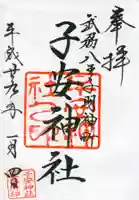 奉拝
武州八王子明神町
子安神社
平成廿九年
一月四日